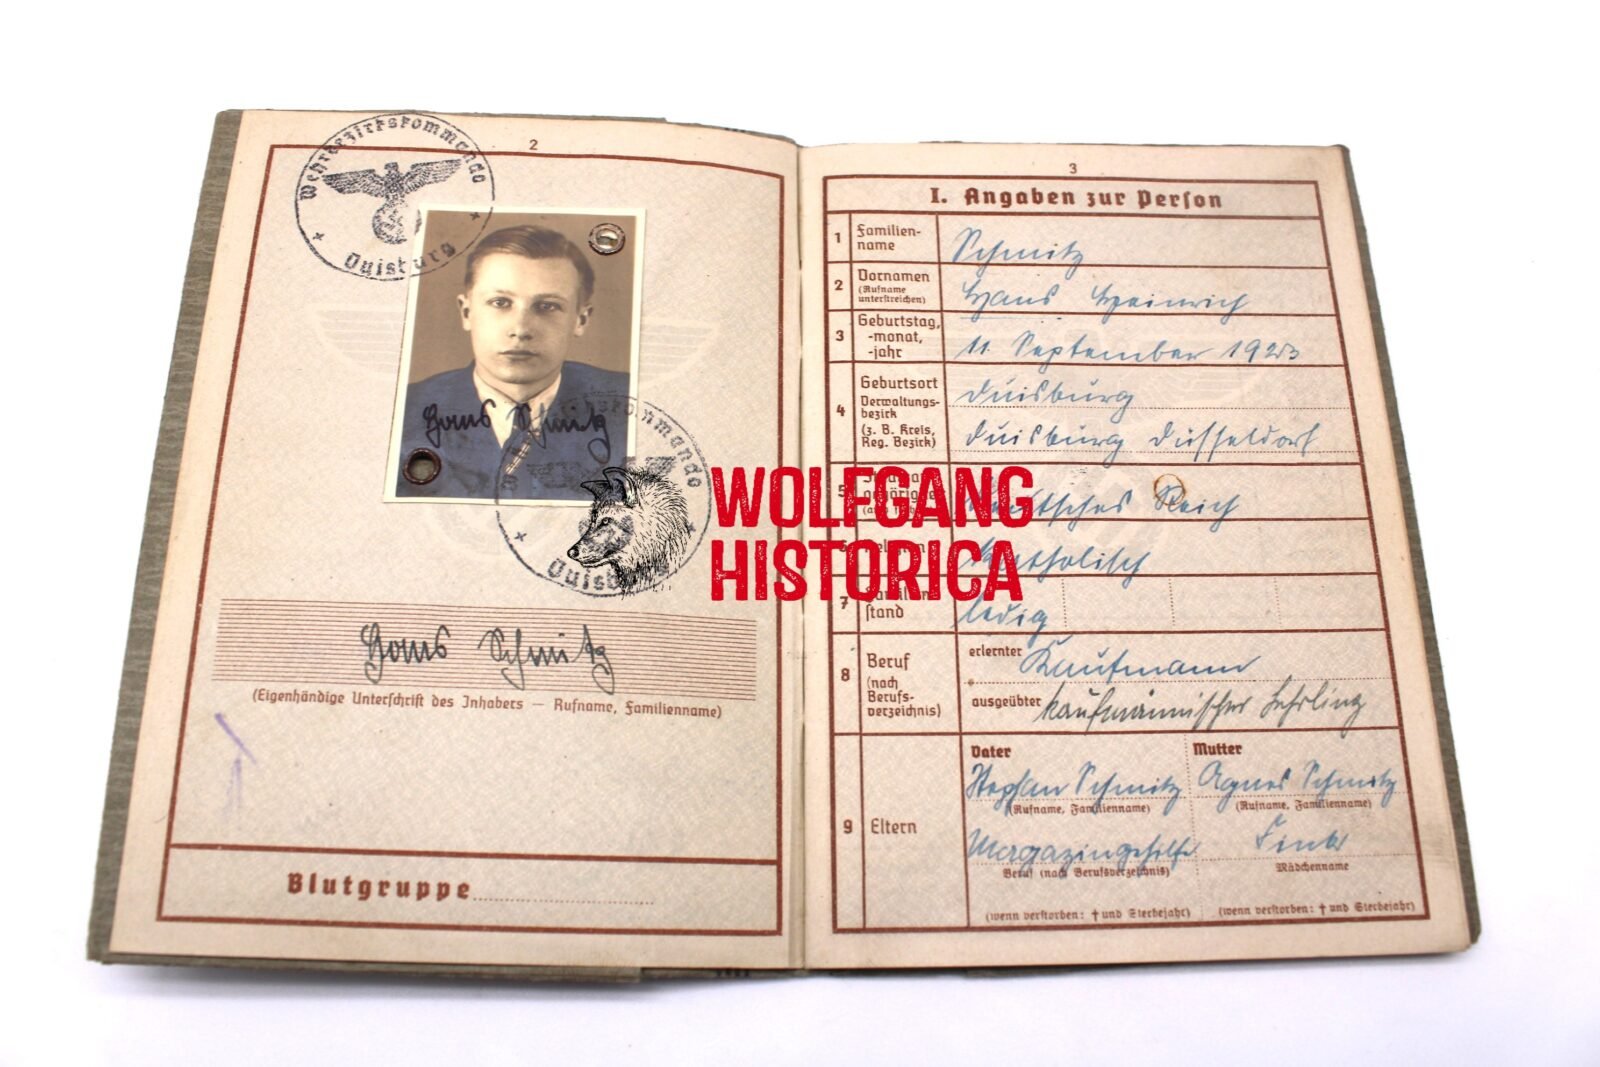 Wehrbezirkskommando
Duisburg
2
Hans Schmitz
Wehrbezirkskommando
Duisburg
Hans Schmitz
(Eigenhändige Unterschrift des Inhabers — Rufname, Familienname)
Blutgruppe
WOLFGANG
HISTORICA
3
I. Angaben zur Person
1 Familien-
name
Schmitz
2 Vornamen
(Rufname
unterstreichen)
Hans Heinrich
3 Geburtstag,
-monat,
-jahr
11. September 1923
4 Geburtsort
Verwaltungs-
bezirk
(z. B. Kreis,
Reg. Bezirk)
Duisburg
Duisburg Düsseldorf
5
Deutsches Reich
Katholisch
7
stand
ledig
8 Beruf
(nach
Berufs-
verzeichnis)
erlernter Kaufmann
ausgeübter kaufmännischer Lehrling
9 Eltern
Vater
Stephan Schmitz
(Rufname, Familienname)
Magazingehilfe
Beruf (nach Berufsverzeichnis)
(wenn verstorben: † und Sterbejahr)
Mutter
Agnes Schmitz
(Rufname, Familienname)
Mädchenname
(wenn verstorben: † und Sterbejahr)